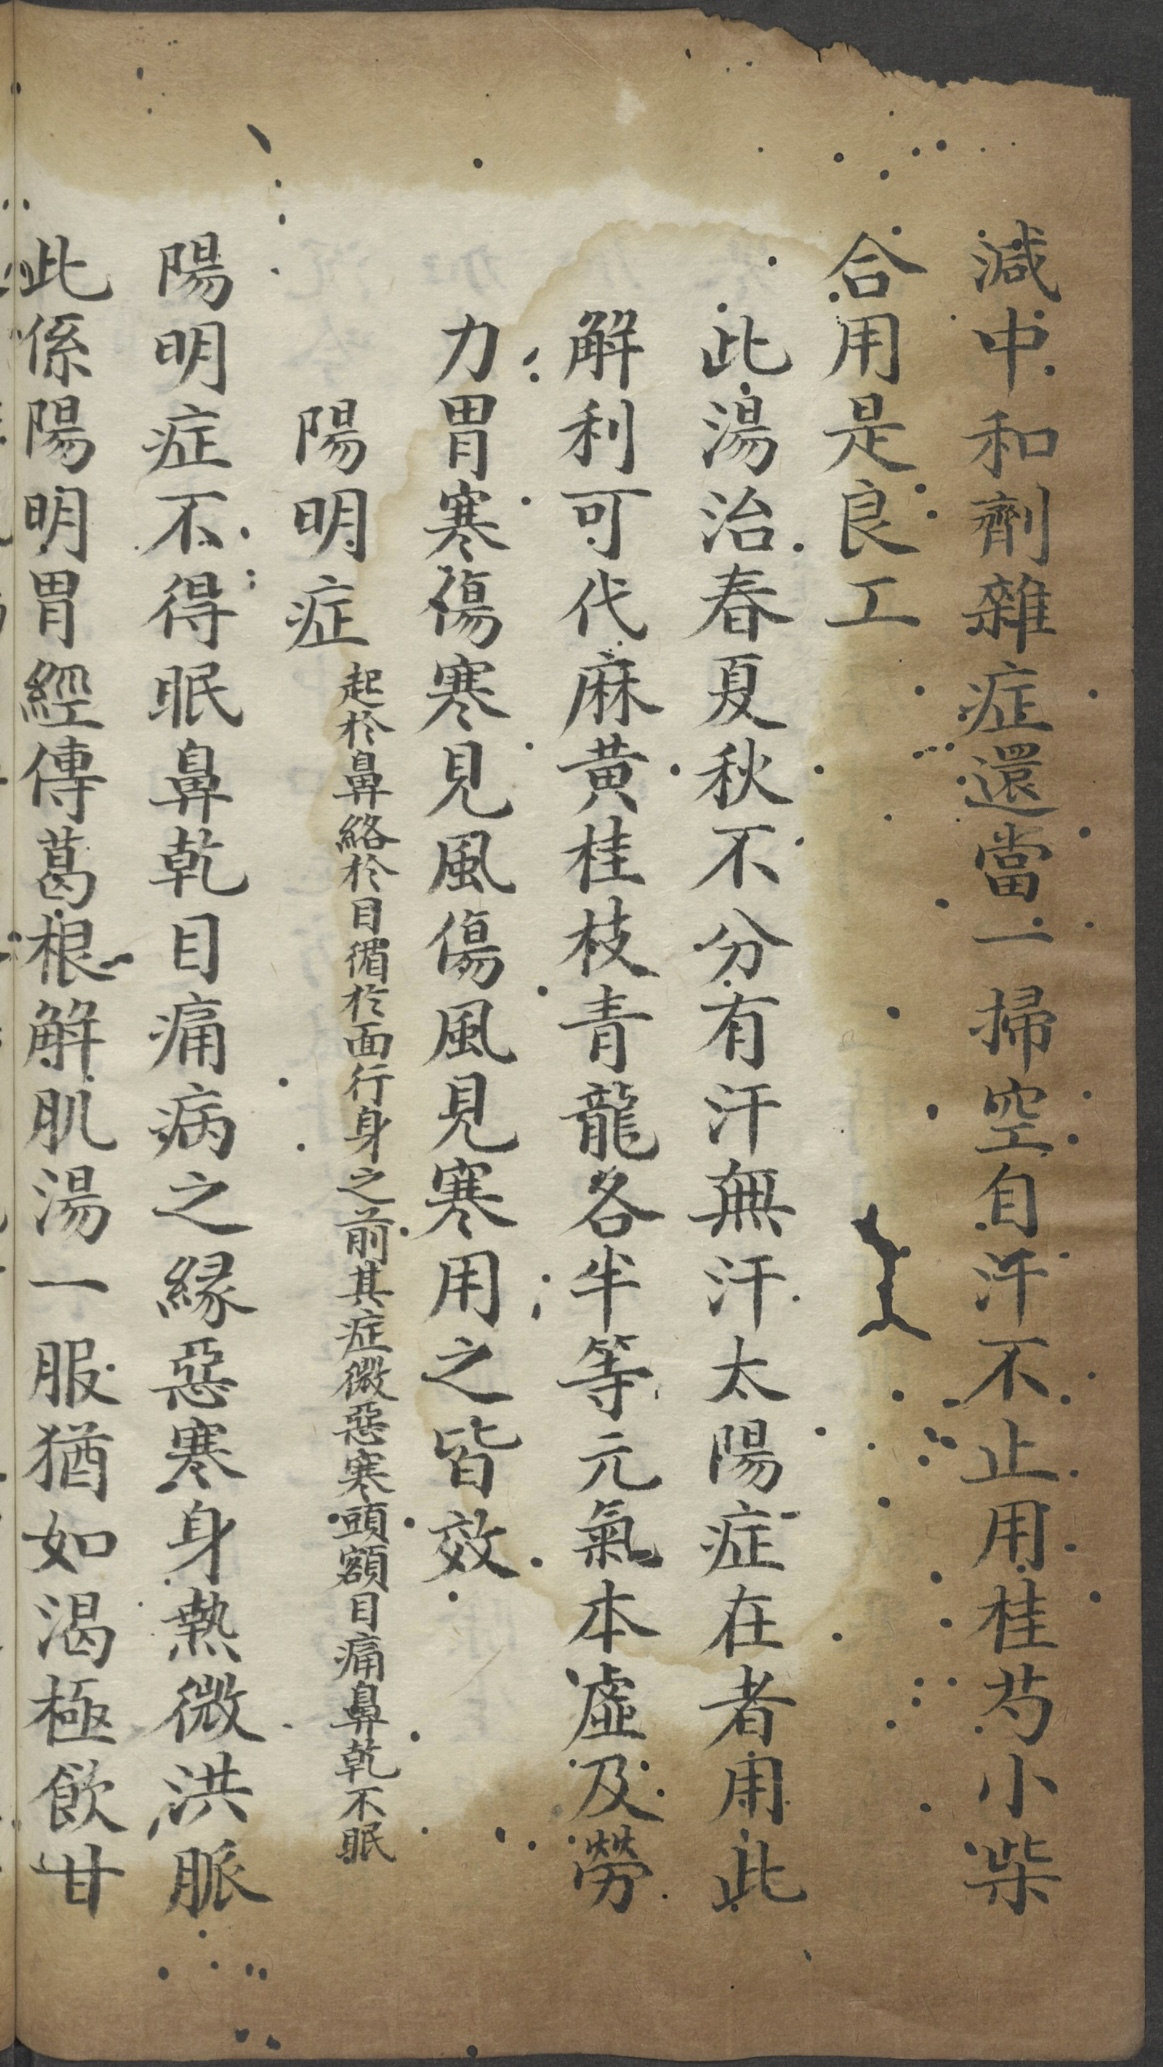 減中和劑雜症還當一掃空自汗不止用桂芍小柴
合用是良工
此湯治春夏秋不分有汗無汗太陽症在者用此
解利可代麻黄桂枝青龍各半等元氣本虛及勞
力胃寒傷寒見風傷風見寒用之皆效
陽明症起於鼻絡於目循於面行身之前其症微惡寒頭額目痛鼻乾不眠
陽明症不得眠鼻乾目痛病之緣惡寒身熱微洪脈
此係陽明胃經傳葛根解肌湯一服猶如渴極飲甘